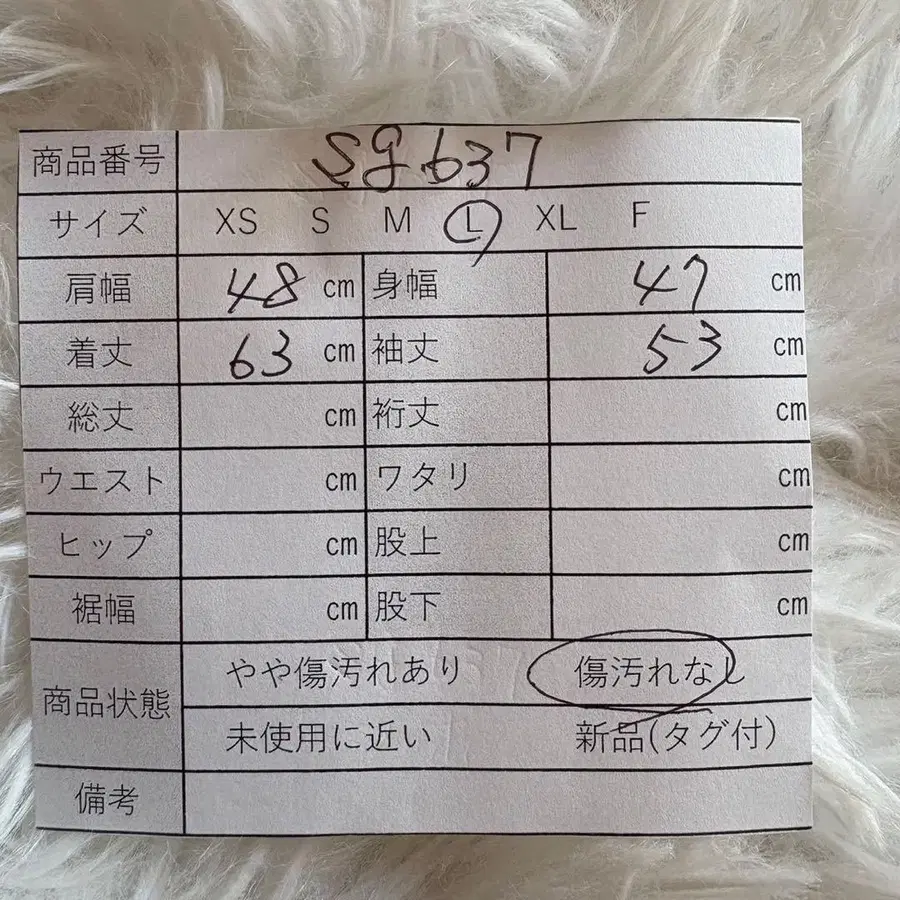 商品番号 sg637
サイズ XS S M L XL F
肩幅 48 cm 身幅 47 cm
着丈 63 cm 袖丈 53 cm
総丈 cm 裄丈 cm
ウエスト cm ワタリ cm
ヒップ cm 股上 cm
裾幅 cm 股下 cm
商品状態 やや傷汚れあり 傷汚れなし
未使用に近い 新品(タグ付)
備考